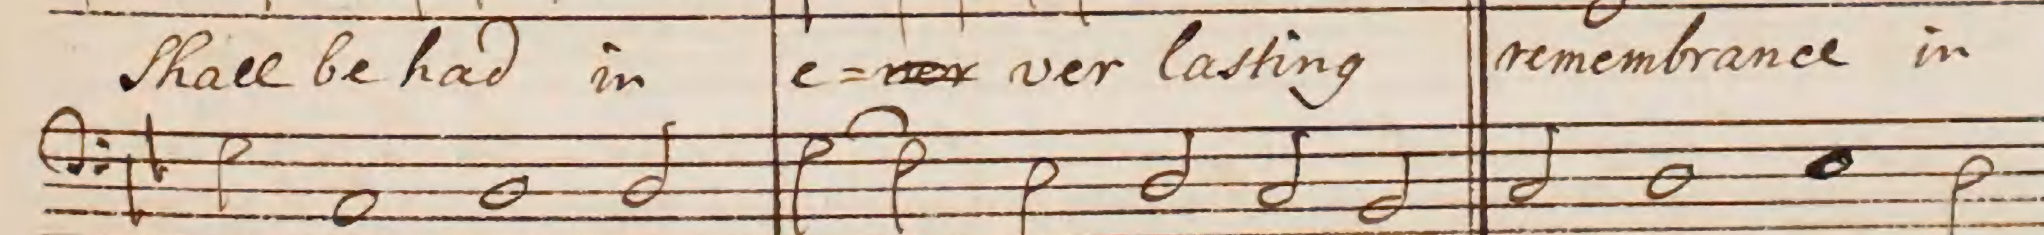 Shall be had in e= ver lasting remembrance in